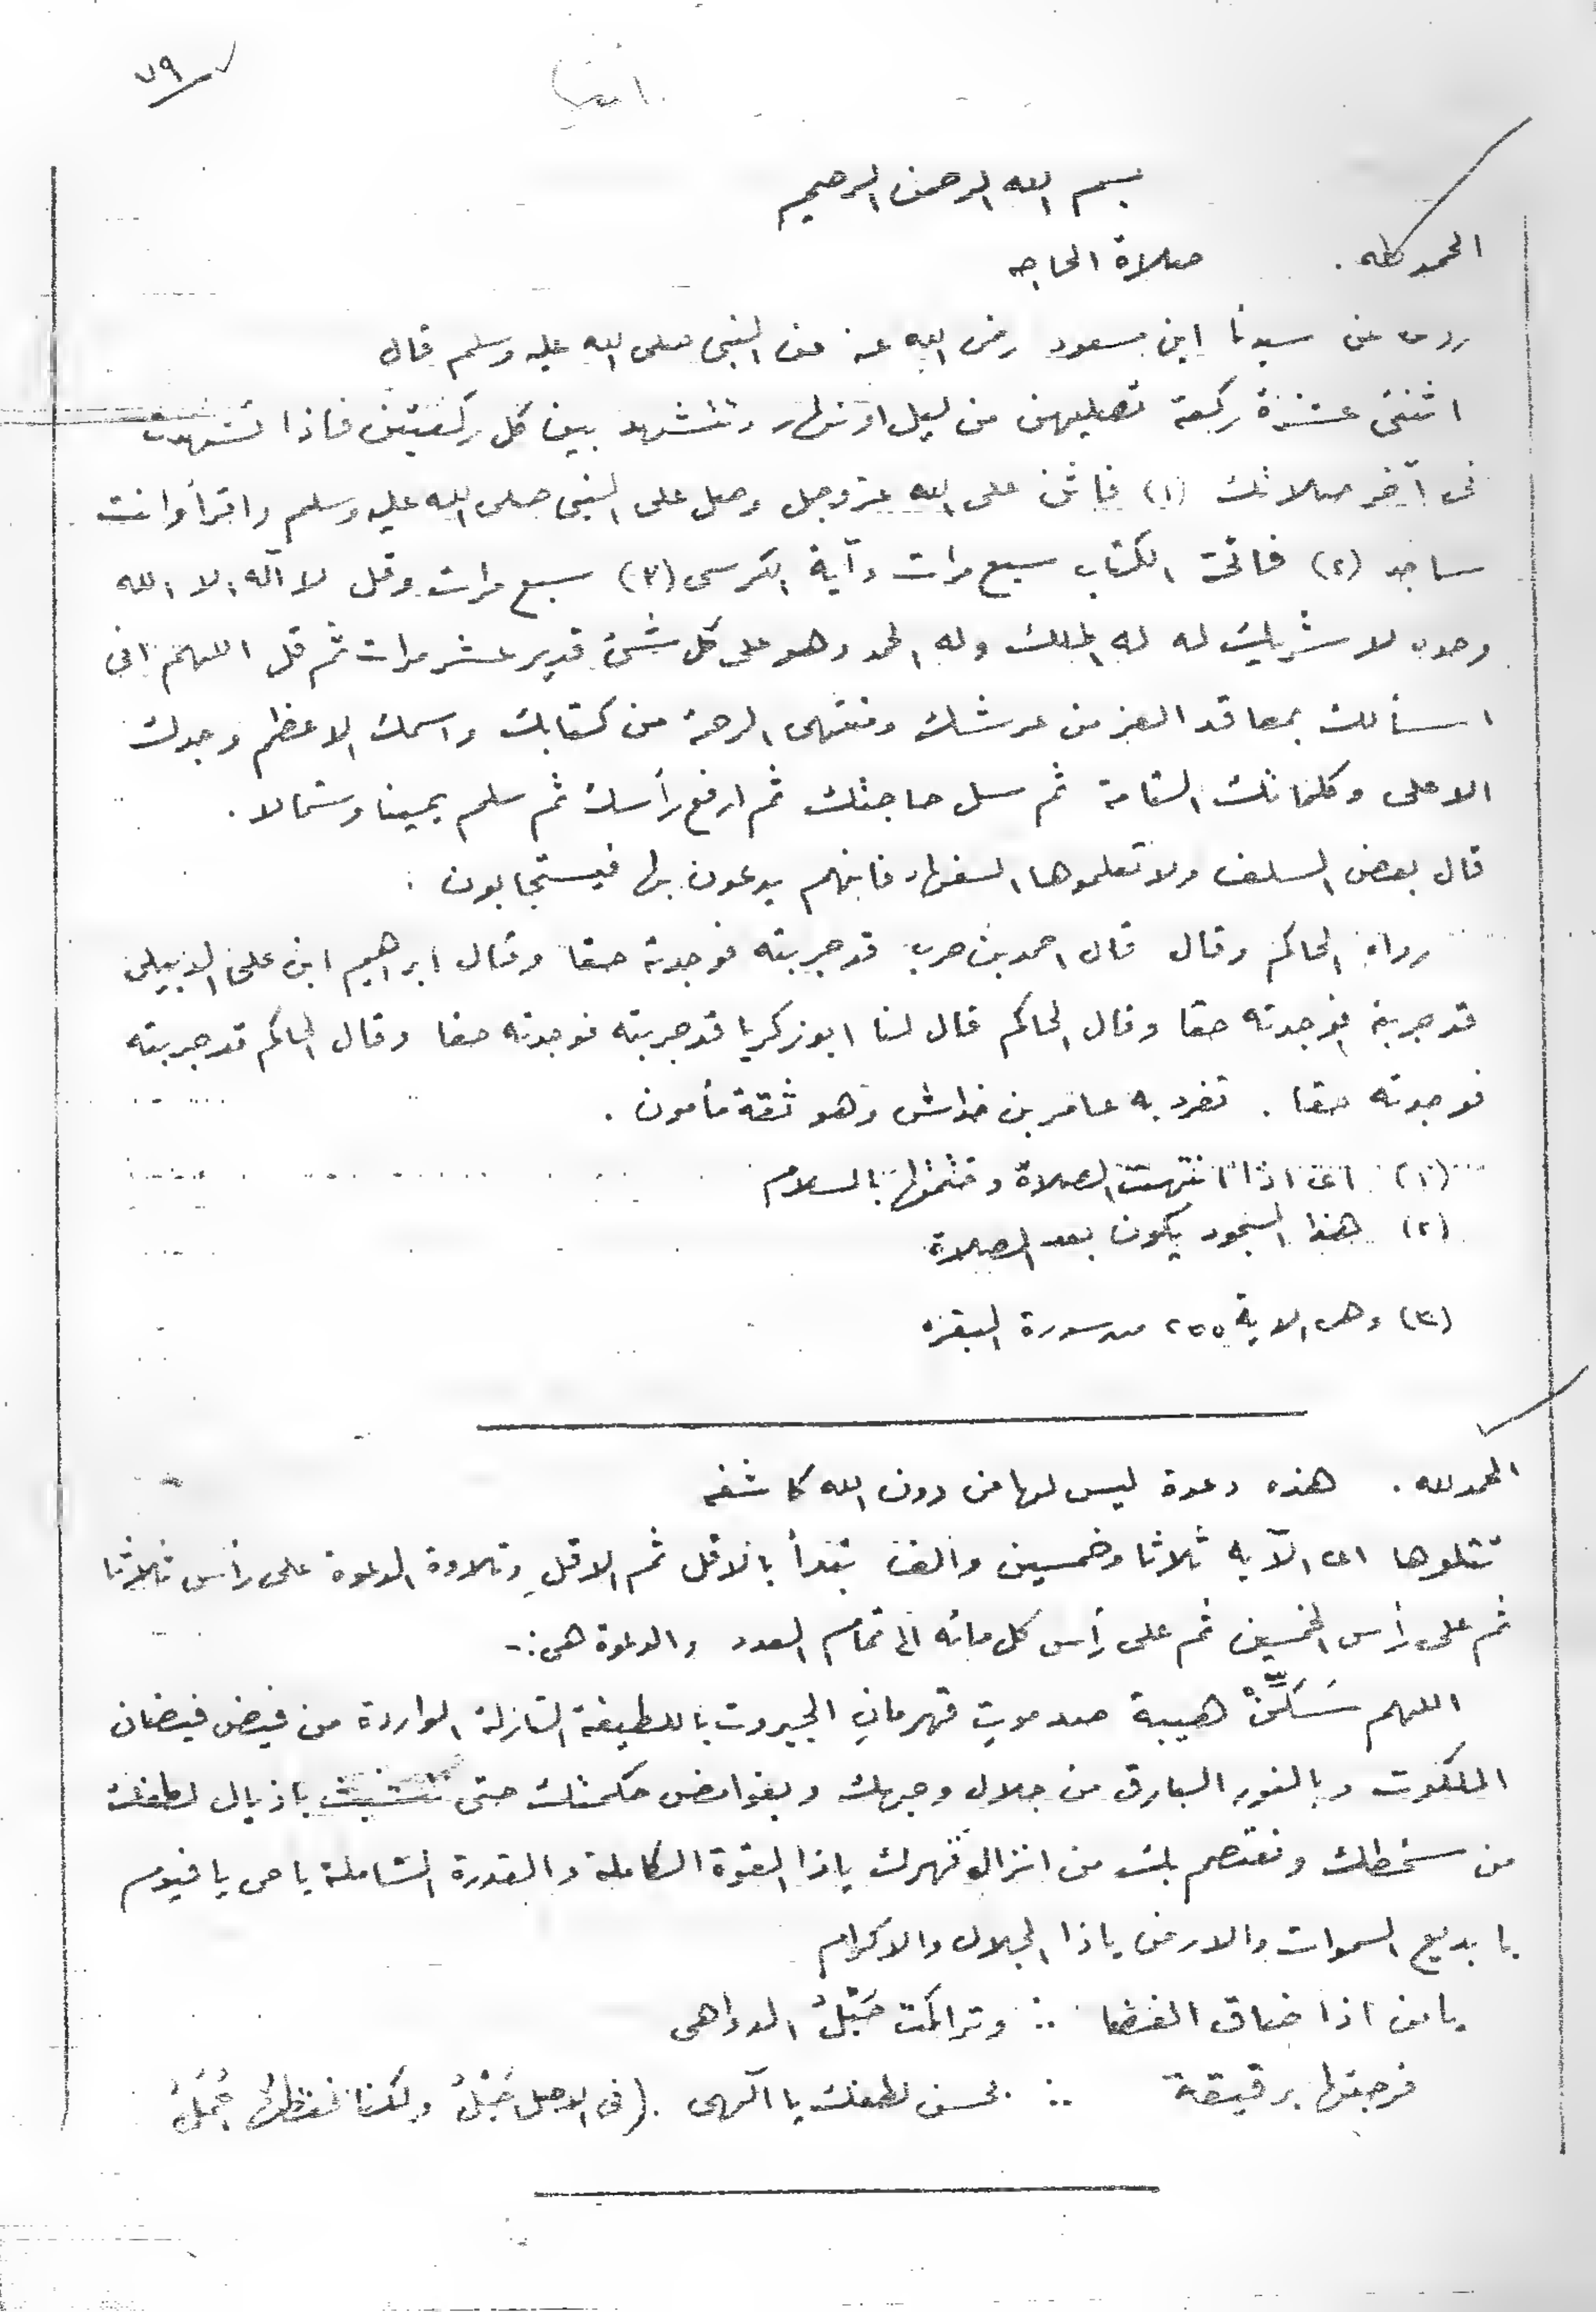 ٧٩
بسم الله الرحمن الرحيم
الحمد لله . صلاة الحاجه
روى عن سيدنا ابن مسعود رضى الله عنه عن النبى صلى الله عليه وسلم قال
اثنتى عشرة ركعة تصليهن من ليل او نهار وتتشهد بين كل ركعتين فاذا تشهدت
فى آخر صلاتك (١) فاثن على الله عز وجل وصل على النبى صلى الله عليه وسلم واقرأ وانت
ساجد (٢) فاتحة الكتاب سبع مرات وآية الكرسى (٣) سبع مرات وقل لا آله الا الله
وحده لا شريك له له الملك وله الحمد وهو على كل شئ قدير عشر مرات ثم قل اللهم انى
اسألك بمعاقد العز من عرشك ومنتهى الرحمة من كتابك واسمك الاعظم وجدك
الاعلى وكلماتك التامة ثم سل حاجتك ثم ارفع رأسك ثم سلم يمينا وشمالا .
قال بعض السلف ولا تعلموها السفهاء فانهم يدعون بها فيستجابون .
رواه الحاكم وقال قال احمد بن حرب قد جربته فوجدته حقا وقال ابراهيم ابن على الدبيلى
قد جربته فوجدته حقا وقال الحاكم قال لنا ابو زكريا قد جربته فوجدته حقا وقال الحاكم قد جربته
فوجدته حقا . تفرد به عامر بن خداش وهو ثقة مأمون .
(١) اى اذا انتهت الصلاة وختمتها بالسلام
(٢) هذا السجود يكون بعد الصلاة
(٣) وهى الاية ٢٥٥ من سورة البقره
الحمد لله . هذه دعوة ليس لها من دون الله كاشفه
تتلوها اى الآيه ثلاثا وخمسين والف تبتدأ بالاقل ثم الاقل وتلاوة الدعوة على رأس ثلاثا
ثم على رأس الخمسين ثم على رأس كل مائه الى تمام العدد والدعوة هى :-
اللهم سَكِّنْ هيبة صدموتِ قهرمانِ الجبروت باللطيفة النازلة الواردة من فيض فيضان
الملكوت وبالنور البارق من جلال وجهك وبغوامض حكمتك حتى نتشبث باذيال لطفك
من سخطك ونعتصم بك من انزال قهرك ياذا القوة الكاملة والقدرة الشاملة ياحى ياقيوم
يا بديع السموات والارض ياذا الجلال والاكرام
يامن اذا ضاق الفضا ∴ وتراكمت حَبْلُ الدواهى
فرجتها برقيقة ∴ بحسن لطفك يا آلهى . (فى الاصل حَبْلُ ولكنا نظنها جُمَلُ